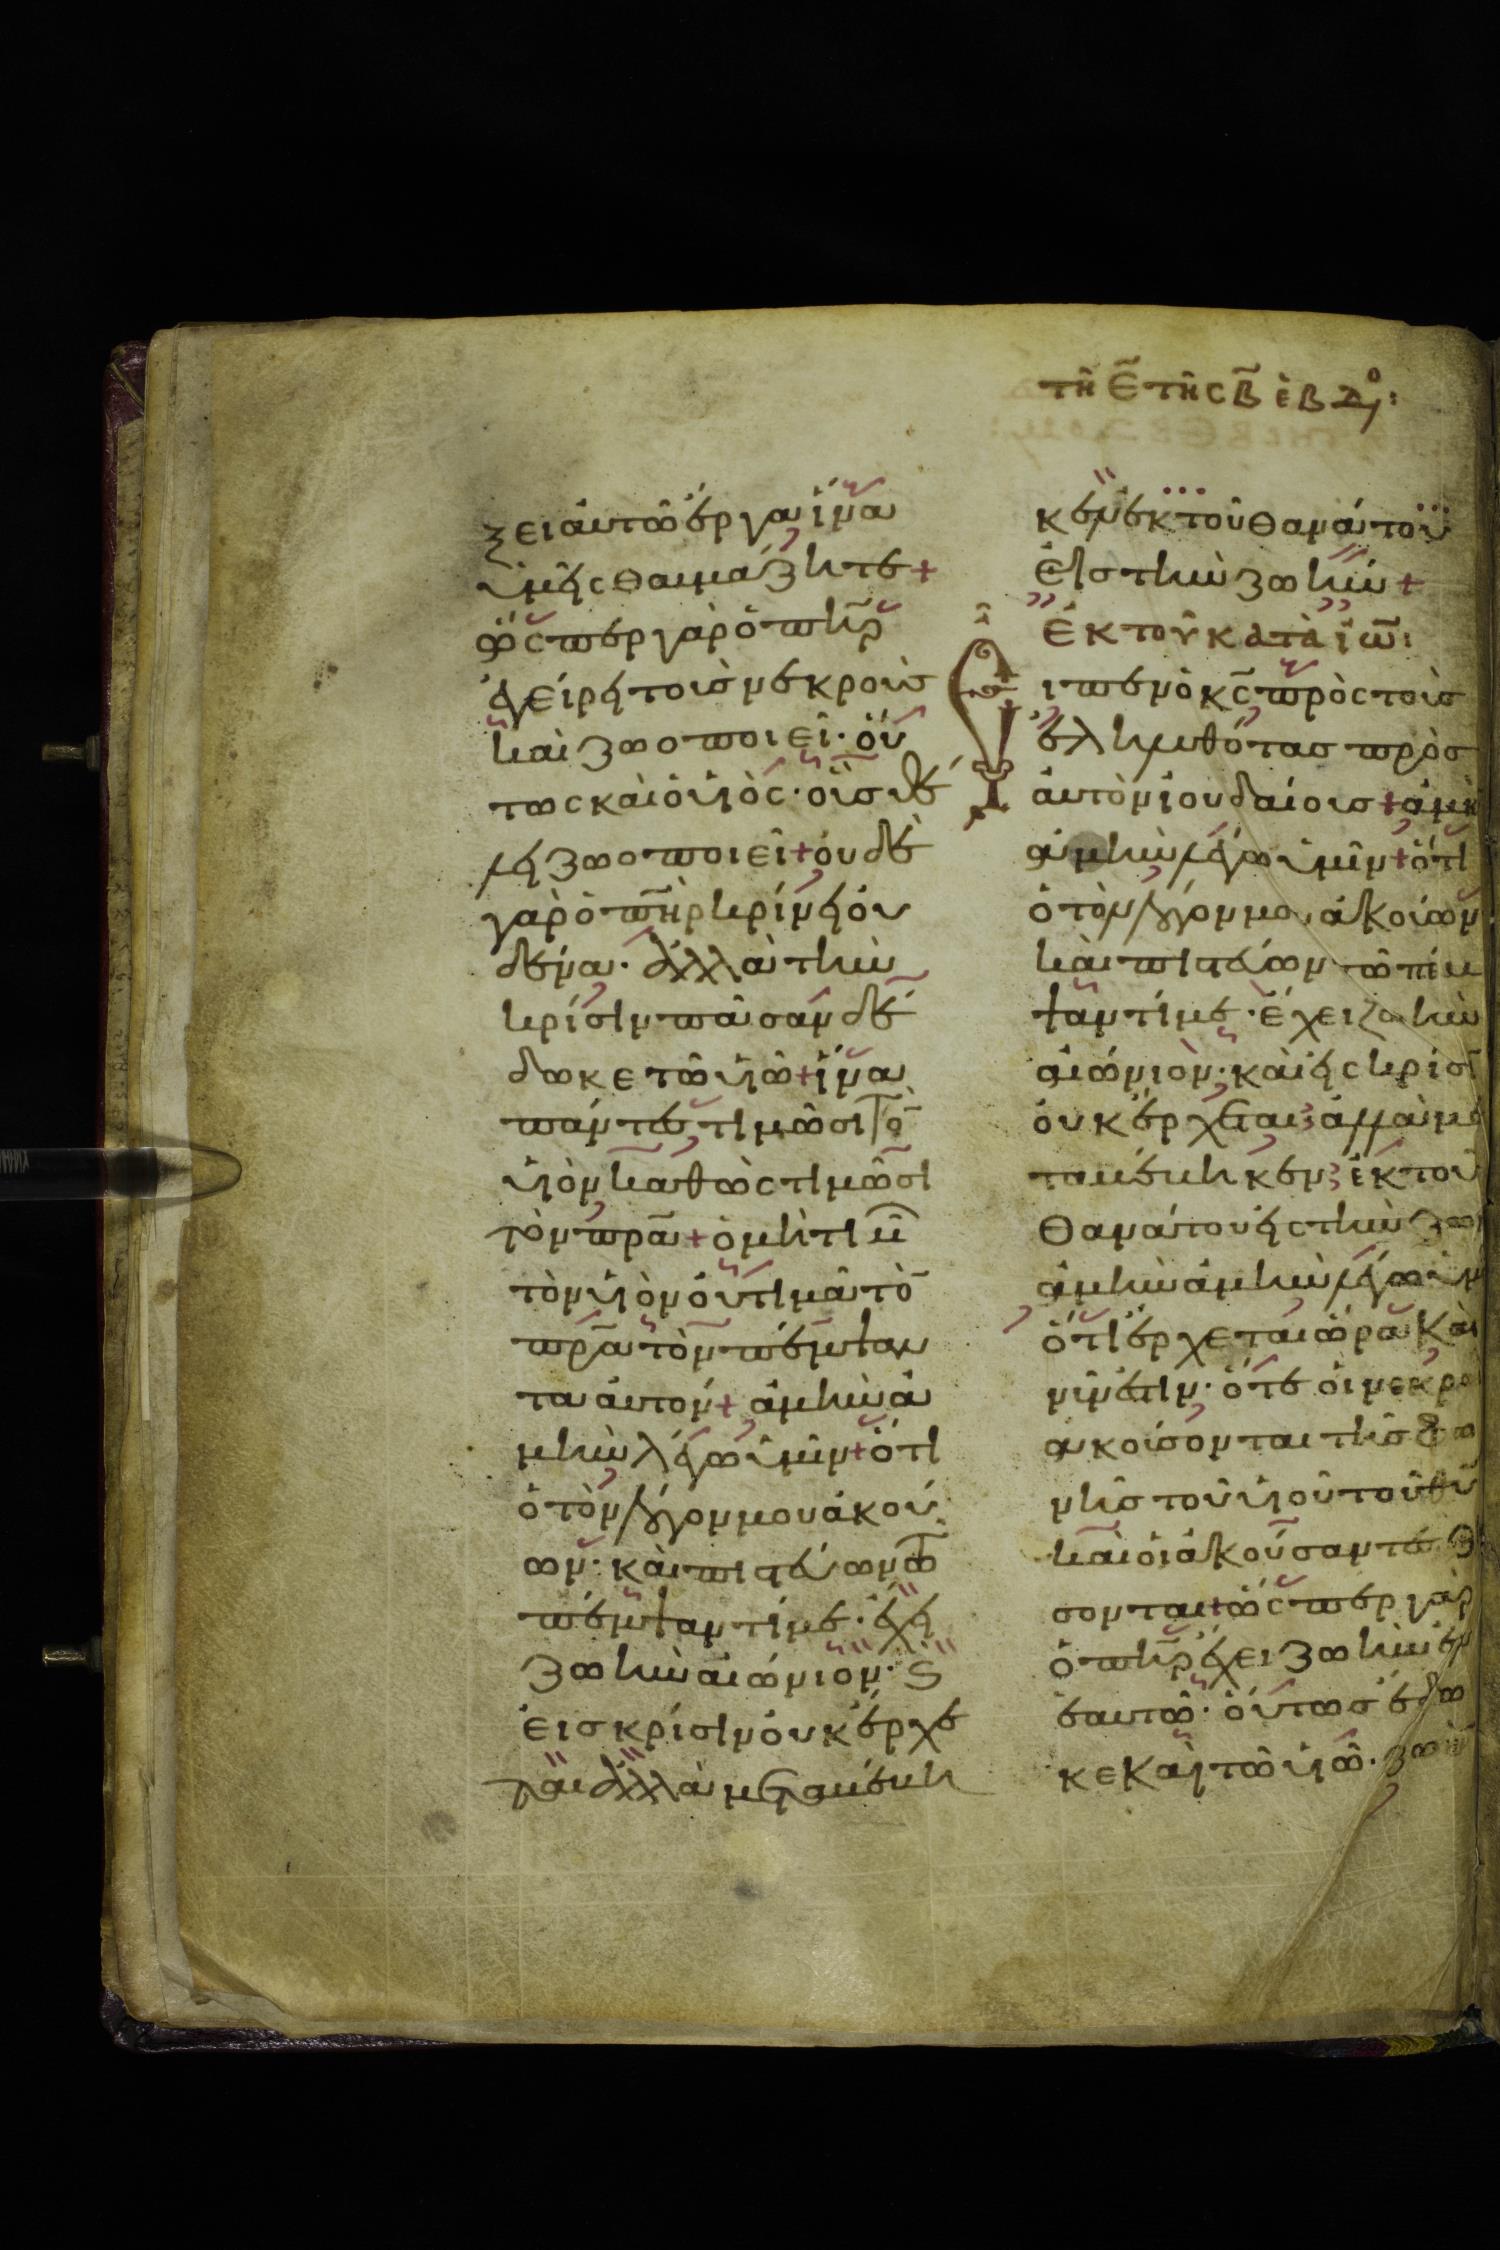 τῆ Ε̄ τῆς Β̄ ἑβδο:
ξει αὐτῶ ἔργα ἵνα
ὑμεῖς θαυμάζητε+
ὥσπερ γὰρ ὁ πη̄ρ
ἐγείρει τοὺς νεκροὺς
καὶ ζωοποιεῖ· οὕ
τως καὶ ὁ υἱὸς· οὓς θέ
λει ζωοποιεῖ+ οὐδὲ
γὰρ ὁ πη̄ρ κρίνει οὐ
δένα· ἀλλὰ τὴν
κρίσιν πᾶσαν δέ
δωκε τῶ υἱῶ+ ἵνα
πάντες τιμῶσι το̄
υἱὸν καθὼς τιμῶσι
τὸν πρ̄α+ ὁ μὴ τιμῶ̄
τὸν υἱὸν οὐ τιμᾶ το̄
πρ̄α τὸν πέμψαν
τα αὐτον+ ἀμὴν ἀ
μὴν λέγω ὑμῖν+ ὅτι
ὁ τὸν λόγον μου ἀκού
ων· καὶ πιστεύων τῶ
πέμψαντί με· ἔχει
ζωὴν αἰώνιον· ϗ
εἰς κρίσιν οὐκ ἔρχε
ται ἀλλὰ μεταβέβη
κεν ἐκ τοῦ θανάτου
εἰς τὴν ζωήν+
Ἐκ τοῦ κατὰ ἰω̄:
Εἶπεν ὁ κς̄ πρὸς τοὺς
ἐληλυθότας πρὸς
αὐτὸν ἰουδαίους+ ἀμὴ
ἀμὴν λέγω ὑμῖν+ ὅτι
ὁ τὸν λόγον μου ἀκούων
καὶ πιστεύων τῶ πέμ
ψαντί με· ἔχει ζωὴν
αἰώνιον· καὶ εἰς κρίσῑ
οὐκ ἔρχεται ἀλλὰ με
ταβέβηκεν ἐκ τοῦ
θανάτου εἰς τὴν ζω
ἀμὴν ἀμὴν λέγω ὑμ
ὅτι ἔρχεται ὥρα καὶ
νῦν ἐστιν· ὅτε οἱ νεκρο
ἀκούσονται τῆς φω
νῆς τοῦ υἱοῦ τοῦ θῡ
καὶ οἱ ἀκούσαντες ζ
σονται+ ὥσπερ γὰρ
ὁ πη̄ρ ἔχει ζωὴν ἐν
ἑαυτῶ· οὕτως ἔδω
κε καὶ τῶ υἱῶ· ζωὴν